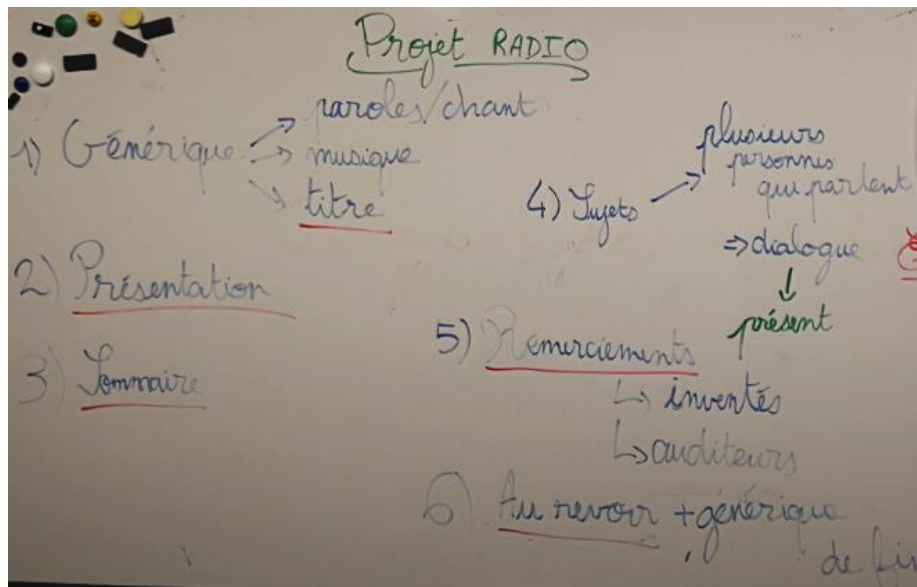 Projet RADIO
1) Générique → paroles/chant
→ musique
→ titre
2) Présentation
3) Sommaire
4) Sujets → plusieurs
personnes
qui parlent
⇒ dialogue
↓
présent
5) Remerciements
↳ inventés
↳ auditeurs
6) Au revoir + générique
de fin